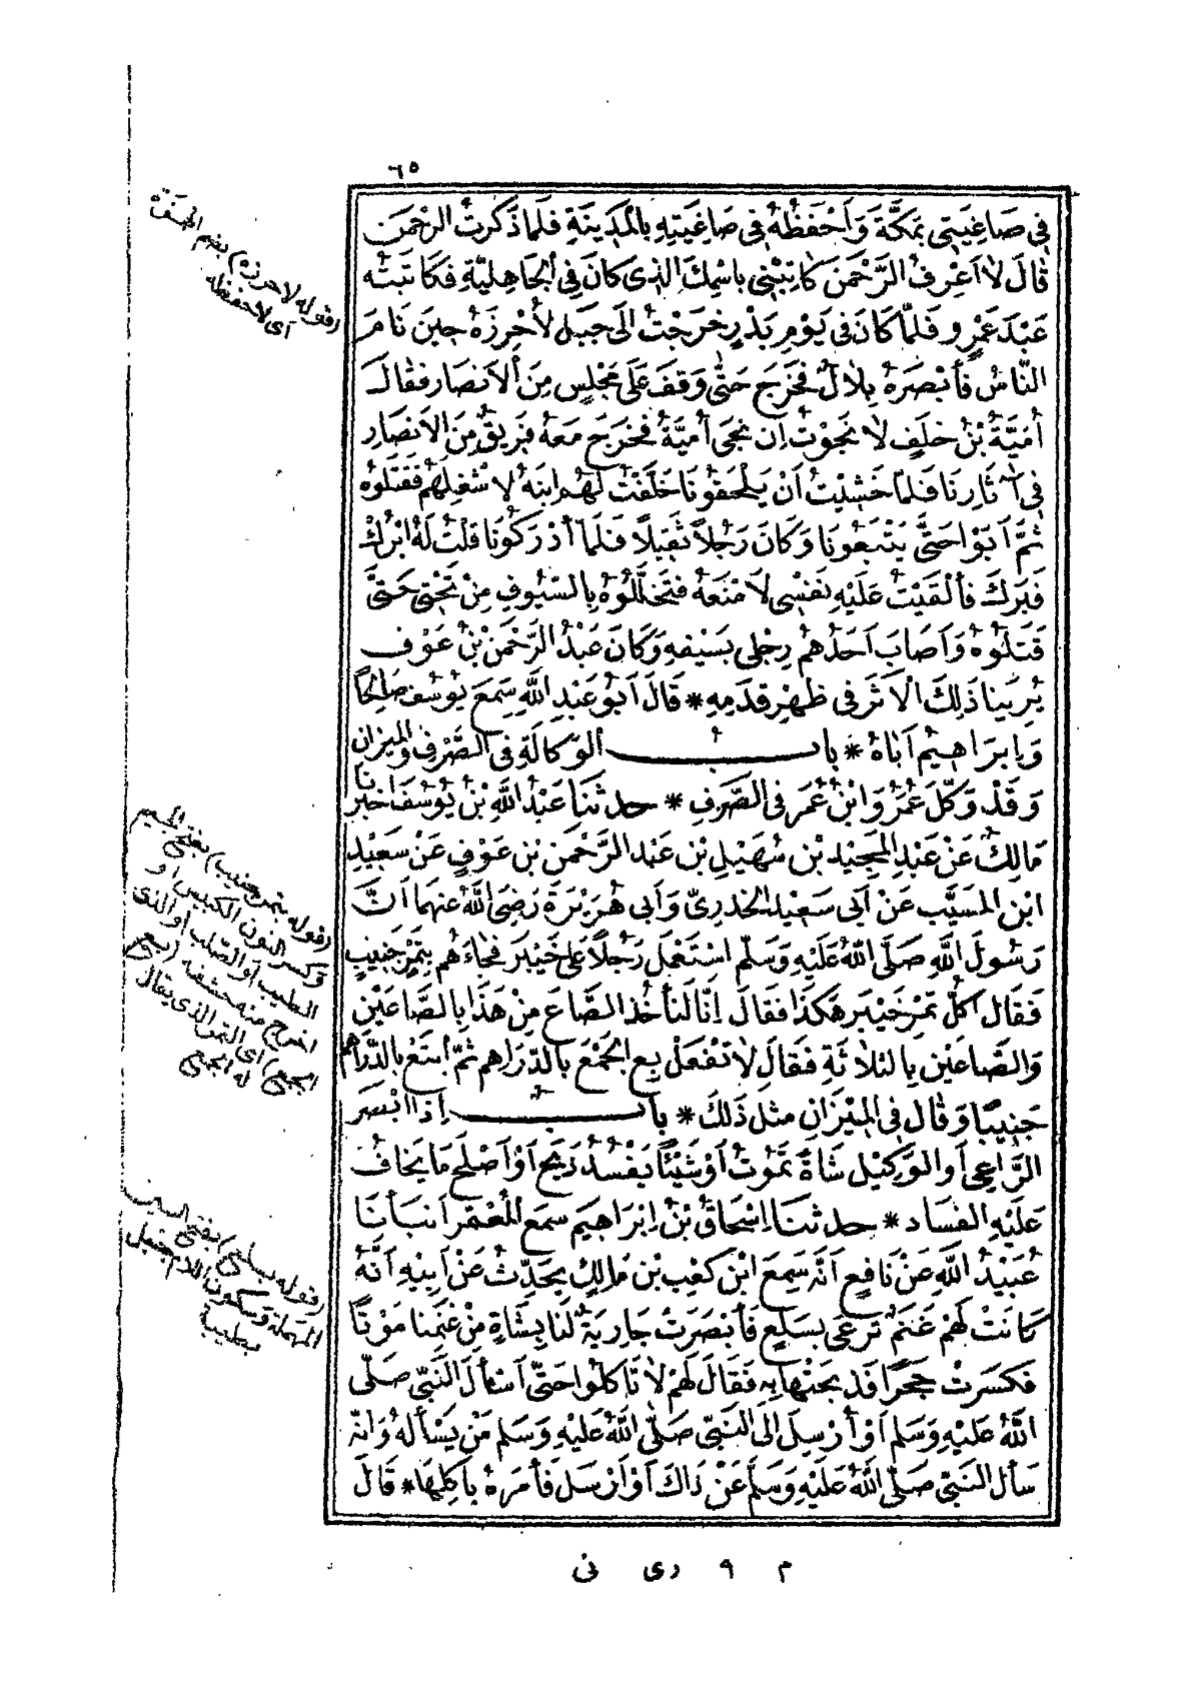 ٦٥
فِى صَاغِيَتِى بِمَكَّةَ وَاَحْفَظُهُ فِى صَاغِيَتِهِ بِالْمَدِينَةِ فَلَمَّا ذَكَرْتُ الرَّحْمَنَ
قَالَ لَا اَعْرِفُ الرَّحْمَنَ كَاتِبْنِى بِاسْمِكَ الَّذِى كَانَ فِى الْجَاهِلِيَّةِ فَكَاتَبْتُهُ
عَبْدَ عَمْرٍو فَلَمَّا كَانَ فِى يَوْمِ بَدْرٍ خَرَجْتُ اِلَى جَبَلٍ لِأُحْرِزَهُ حِينَ نَامَ
النَّاسُ فَأَبْصَرَهُ بِلَالٌ فَخَرَجَ حَتَّى وَقَفَ عَلَى مَجْلِسٍ مِنَ الْاَنْصَارِ فَقَالَ
اُمَيَّةُ بْنُ خَلَفٍ لَا نَجَوْتُ اِنْ نَجَى اُمَيَّةُ فَخَرَجَ مَعَهُ فَرِيقٌ مِنَ الْاَنْصَارِ
فِى آثَارِنَا فَلَمَّا خَشِيْتُ اَنْ يَلْحَقُونَا خَلَّفْتُ لَهُمُ ابْنَهُ لِاَشْغَلَهُمْ فَقَتَلُوهُ
ثُمَّ اَبَوْا حَتَّى يَتْبَعُونَا وَكَانَ رَجُلًا ثَقِيلًا فَلَمَّا أَدْرَكُونَا قُلْتُ لَهُ ابْرُكْ
فَبَرَكَ فَأَلْقَيْتُ عَلَيْهِ نَفْسِى لِاَمْنَعَهُ فَتَخَلَّلُوهُ بِالسُّيُوفِ مِنْ تَحْتِى حَتَّى
قَتَلُوهُ وَاَصَابَ اَحَدُهُمْ رِجْلِى بِسَيْفِهِ وَكَانَ عَبْدُ الرَّحْمَنِ بْنُ عَوْفٍ
يُرِيْنَا ذَلِكَ الْاَثَرَ فِى ظَهْرِ قَدَمِهِ * قَالَ اَبُو عَبْدِ اللّٰهِ سَمِعَ يُوسُفُ صَالِحًا
وَاِبْرَاهِيْمُ اَبَاهُ * بَابُ الْوَكَالَةِ فِى الصَّرْفِ وَالْمِيْزَانِ
وَقَدْ وَكَّلَ عُمَرُ وَابْنُ عُمَرَ فِى الصَّرْفِ * حَدَّثَنَا عَبْدُ اللّٰهِ بْنُ يُوسُفَ اَخْبَرَنَا
مَالِكٌ عَنْ عَبْدِ الْمَجِيْدِ بْنِ سُهَيْلِ بْنِ عَبْدِ الرَّحْمَنِ بْنِ عَوْفٍ عَنْ سَعِيْدِ
ابْنِ الْمُسَيَّبِ عَنْ اَبِى سَعِيْدٍ الْخُدْرِىِّ وَاَبِى هُرَيْرَةَ رَضِىَ اللّٰهُ عَنْهُمَا اَنَّ
رَسُولَ اللّٰهِ صَلَّى اللّٰهُ عَلَيْهِ وَسَلَّمَ اسْتَعْمَلَ رَجُلًا عَلَى خَيْبَرَ فَجَاءَهُمْ بِتَمْرٍ جَنِيْبٍ
فَقَالَ أَكُلُّ تَمْرِ خَيْبَرَ هَكَذَا فَقَالَ اِنَّا لَنَأْخُذُ الصَّاعَ مِنْ هَذَا بِالصَّاعَيْنِ
وَالصَّاعَيْنِ بِالثَّلَاثَةِ فَقَالَ لَا تَفْعَلْ بِعِ الْجَمْعَ بِالدَّرَاهِمِ ثُمَّ ابْتَعْ بِالدَّرَاهِمِ
جَنِيبًا وَقَالَ فِى الْمِيْزَانِ مِثْلَ ذَلِكَ * بَابٌ اِذَا اَبْصَرَ
الرَّاعِى اَوِ الْوَكِيْلُ شَاةً تَمُوْتُ اَوْ شَيْئًا يَفْسُدُ ذَبَحَ اَوْ اَصْلَحَ مَا يَخَافُ
عَلَيْهِ الْفَسَادَ * حَدَّثَنَا اِسْحَاقُ بْنُ اِبْرَاهِيْمَ سَمِعَ الْمُعْتَمِرَ اَنْبَأَنَا
عُبَيْدُ اللّٰهِ عَنْ نَافِعٍ اَنَّهُ سَمِعَ ابْنَ كَعْبِ بْنِ مَالِكٍ يُحَدِّثُ عَنْ اَبِيْهِ اَنَّهُ
كَانَتْ لَهُمْ غَنَمٌ تَرْعَى بِسَلْعٍ فَأَبْصَرَتْ جَارِيَةٌ لَنَا بِشَاةٍ مِنْ غَنَمِنَا مَوْتًا
فَكَسَرَتْ حَجَرًا فَذَبَحَتْهَا بِهِ فَقَالَ لَهُمْ لَا تَأْكُلُوا حَتَّى اَسْأَلَ النَّبِىَّ صَلَّى
اللّٰهُ عَلَيْهِ وَسَلَّمَ اَوْ أُرْسِلَ اِلَى النَّبِىِّ صَلَّى اللّٰهُ عَلَيْهِ وَسَلَّمَ مَنْ يَسْأَلُهُ وَاَنَّهُ
سَأَلَ النَّبِىَّ صَلَّى اللّٰهُ عَلَيْهِ وَسَلَّمَ عَنْ ذَاكَ اَوْ اَرْسَلَ فَأَمَرَهُ بِأَكْلِهَا * قَالَ
(قوله لاحرزه) بضم الهمزة
اى لاحفظه
(قوله بتمر جنيب) بفتح الجيم
وكسر النون الكبيس او
الطيب او الصلب او الذى
اخرج منه حشفه (بع
الجمع) اى التمر الذى يقال
له الجمع
(قوله بسلع) بفتح السين
المهملة وسكون اللام جبل
بطيبة
م ٩ رى نى